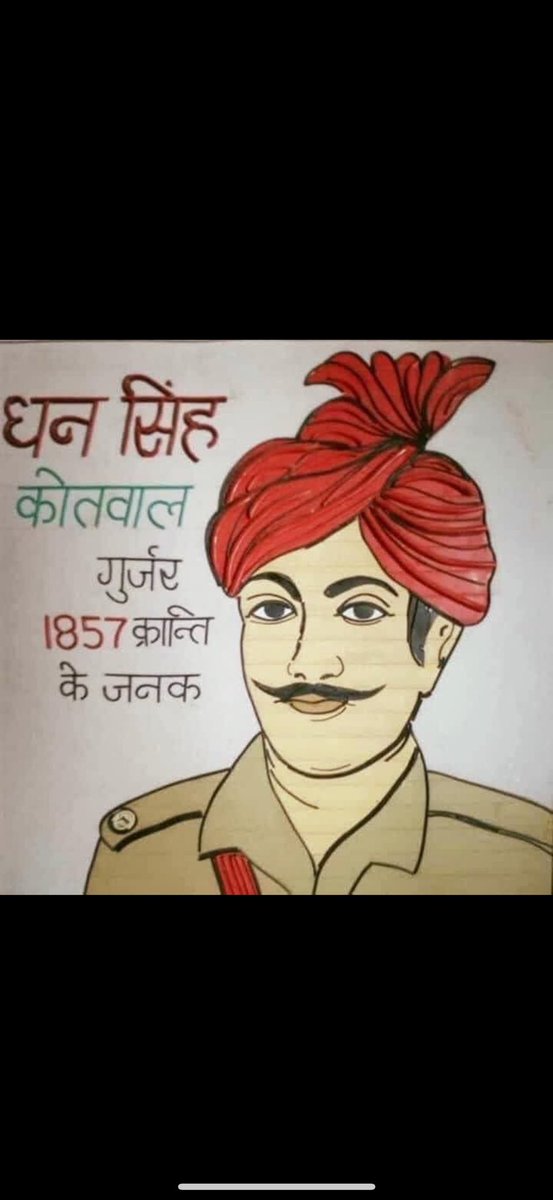 धन सिंह
कोतवाल
गुर्जर
1857 क्रान्ति
के जनक